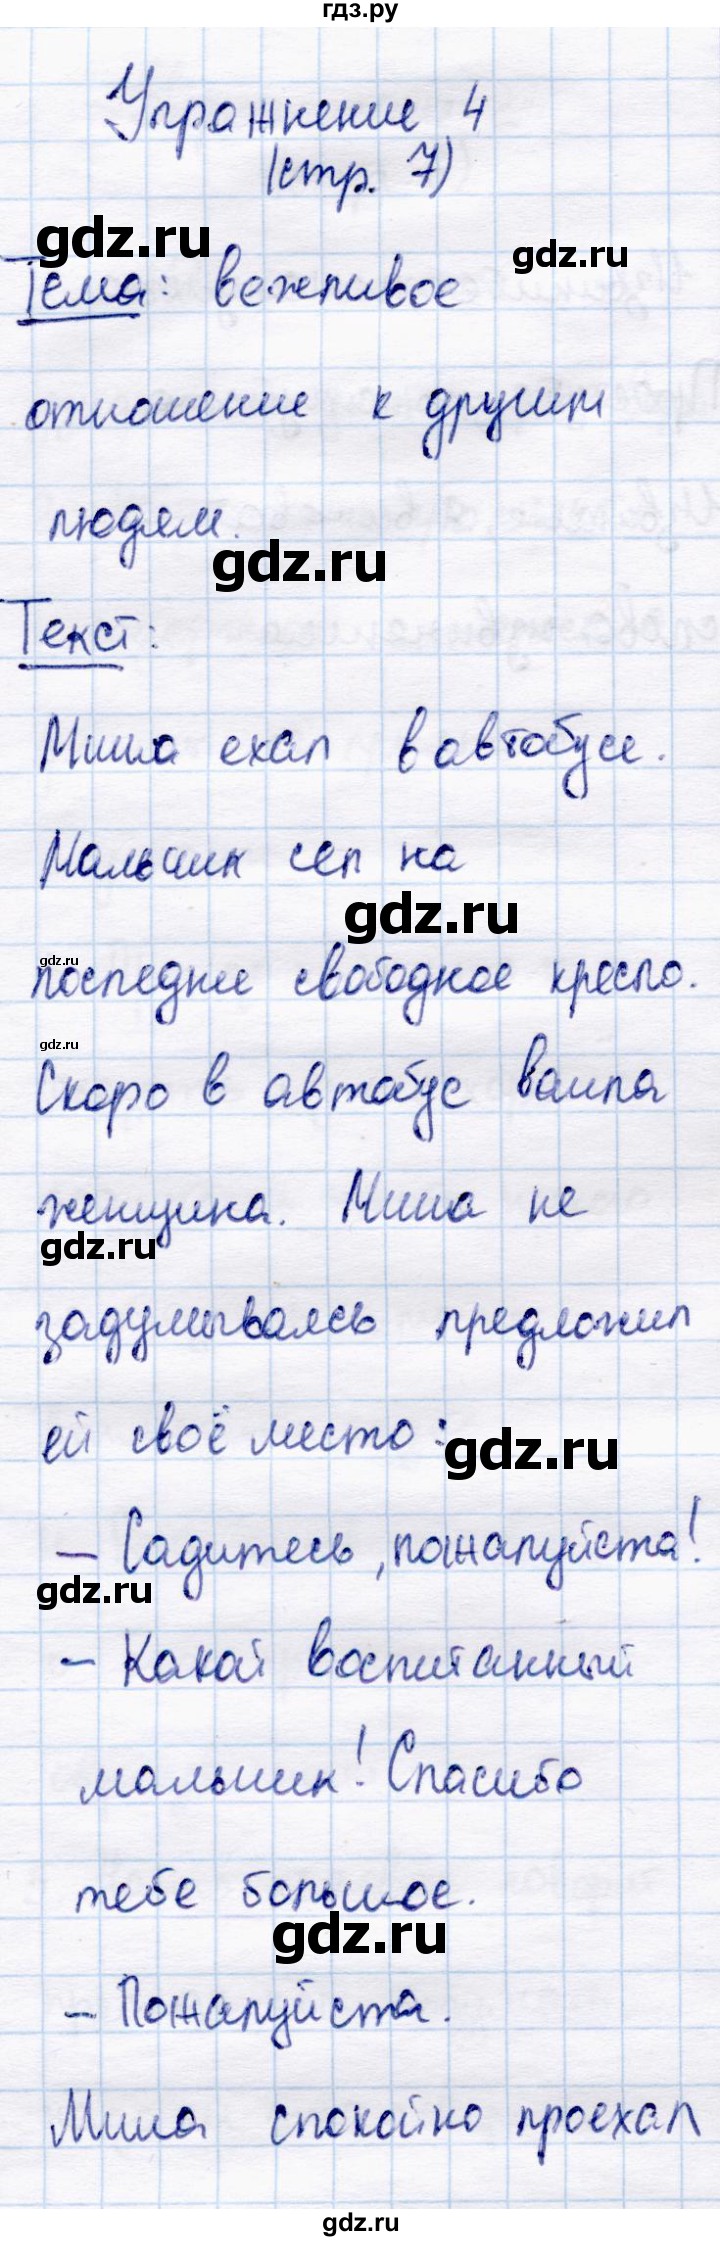 гдз.ру
Упражнение 4
(стр. 7)
gdz.ru
gdz.ru
Тема: вежливое
отношение к другим
людям.
gdz.ru
Текст:
Миша ехал в автобусе.
Мальчик сел на
gdz.ru
gdz.ru
последнее свободное кресло.
gdz.ru
Скоро в автобус вошла
женщина. Миша не
gdz.ru
задумываясь предложил
ей своё место:
gdz.ru
– Садитесь, пожалуйста!
gdz.ru
– Какой воспитанный
мальчик! Спасибо
тебе большое.
gdz.ru
– Пожалуйста.
Миша спокойно проехал
gdz.ru